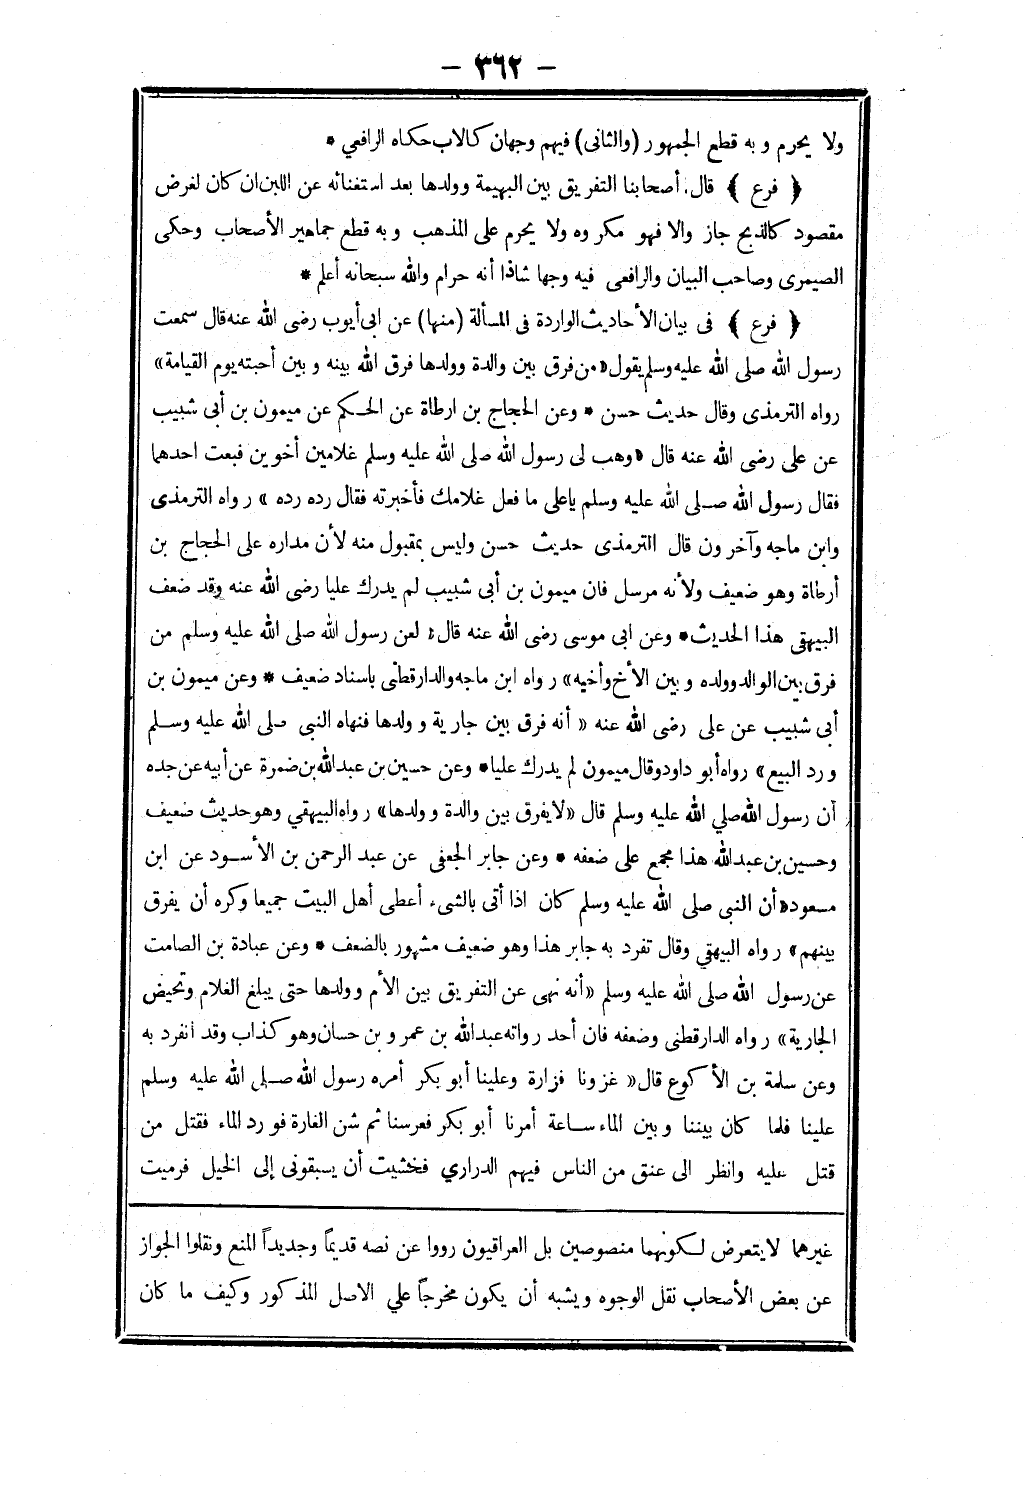 - ٣٦٢ -
ولا يحرم وبه قطع الجمهور (والثانى) فيهم وجهان كالاب حكاه الرافعي *
﴿ فرع ﴾ قال أصحابنا التفريق بين البهيمة وولدها بعد استغنائه عن اللبن ان كان لغرض
مقصود كالذبح جاز والا فهو مكروه ولا يحرم على المذهب وبه قطع جماهير الأصحاب وحكى
الصيمرى وصاحب البيان والرافعى فيه وجها شاذا أنه حرام والله سبحانه أعلم *
﴿ فرع ﴾ فى بيان الأحاديث الواردة فى المسألة (منها) عن ابى أيوب رضى الله عنه قال سمعت
رسول الله صلى الله عليه وسلم يقول «من فرق بين والدة وولدها فرق الله بينه وبين أحبته يوم القيامة»
رواه الترمذى وقال حديث حسن * وعن الحجاج بن ارطاة عن الحكم عن ميمون بن أبى شبيب
عن على رضى الله عنه قال «وهب لى رسول الله صلى الله عليه وسلم غلامين أخوين فبعت احدهما
فقال رسول الله صلى الله عليه وسلم ياعلى ما فعل غلامك فأخبرته فقال رده رده » رواه الترمذى
وابن ماجه وآخرون قال الترمذى حديث حسن وليس بمقبول منه لأن مداره على الحجاج بن
أرطاة وهو ضعيف ولأنه مرسل فان ميمون بن أبى شبيب لم يدرك عليا رضى الله عنه وقد ضعف
البيهقى هذا الحديث * وعن ابى موسى رضى الله عنه قال «لعن رسول الله صلى الله عليه وسلم من
فرق بين الوالد وولده وبين الأخ وأخيه» رواه ابن ماجه والدارقطنى باسناد ضعيف * وعن ميمون بن
أبى شبيب عن على رضى الله عنه « أنه فرق بين جارية وولدها فنهاه النبى صلى الله عليه وسلم
ورد البيع» رواه أبو داود وقال ميمون لم يدرك عليا * وعن حسين بن عبدالله بن ضمرة عن أبيه عن جده
أن رسول الله صلي الله عليه وسلم قال «لا يفرق بين والدة وولدها» رواه البيهقي وهو حديث ضعيف
وحسين بن عبدالله هذا مجمع على ضعفه * وعن جابر الجعفى عن عبد الرحمن بن الأسود عن ابن
مسعود «أن النبى صلى الله عليه وسلم كان اذا أتى بالشىء أعطى أهل البيت جميعا وكره أن يفرق
بينهم» رواه البيهقي وقال تفرد به جابر هذا وهو ضعيف مشهور بالضعف * وعن عبادة بن الصامت
عن رسول الله صلى الله عليه وسلم «أنه نهى عن التفريق بين الأم وولدها حتى يبلغ الغلام وتحيض
الجارية» رواه الدارقطنى وضعفه فان أحد رواته عبدالله بن عمرو بن حسان وهو كذاب وقد انفرد به
وعن سلمة بن الأكوع قال« غزونا فزارة وعلينا أبو بكر أمره رسول الله صلى الله عليه وسلم
علينا فلما كان بيننا وبين الماء ساعة أمرنا أبو بكر فعرسنا ثم شن الغارة فورد الماء فقتل من
قتل عليه وانظر الى عنق من الناس فيهم الدراري فخشيت أن يسبقونى إلى الخيل فرميت
غيرهما لا يتعرض لكونهما منصوصين بل العراقيون رووا عن نصه قديماً وجديداً المنع ونقلوا الجواز
عن بعض الأصحاب نقل الوجوه ويشبه أن يكون مخرجاً علي الاصل المذكور وكيف ما كان